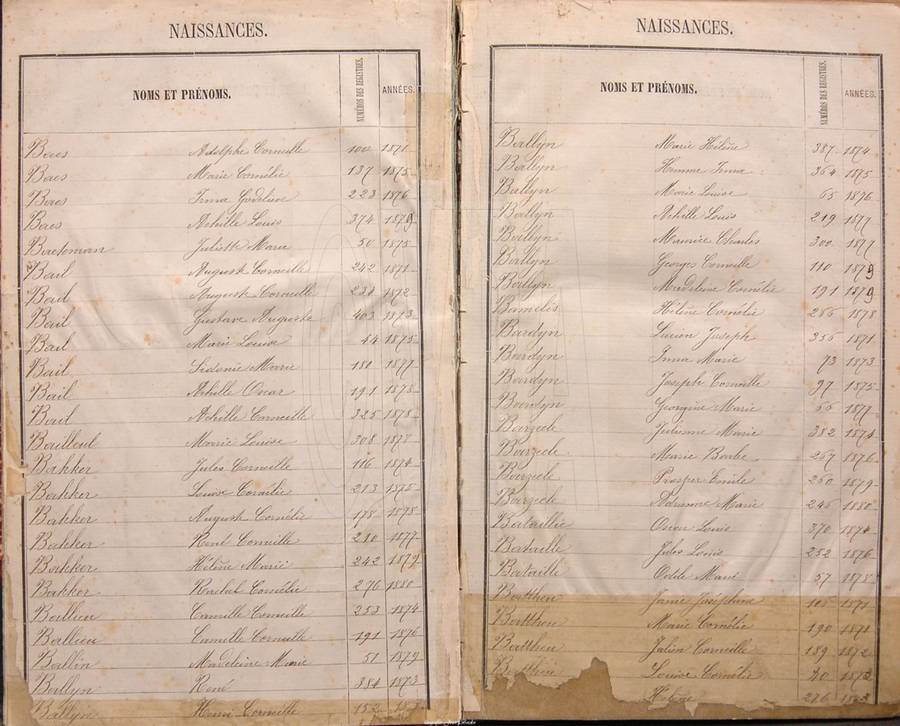 NAISSANCES.
NOMS ET PRÉNOMS. NUMÉROS DES REGISTRES. ANNÉES.
Baes Adolphe Corneille 100 1871
Baes Marie Cornélie 137 1875
Baes Irma Godelieve 223 1876
Baes Achille Louis 374 1879
Baeteman Juliette Marie 50 1875
Bail August Corneille 242 1871
Bail August Corneille 1872
Bail Gustave Auguste 403 1873
Bail Marie Louise 44 1875
Bail Sidonie Marie 180 1877
Bail Achille Oscar 191 1878
Bail Achille Corneille 325 1878
Bailleul Marie Louise 308 1878
Bakker Jules Corneille 116 1874
Bakker Louise Cornélie 213 1875
Bakker August Cornélie 178 1878
Bakker René Corneille 210 1877
Bakker Hélène Marie 242 1879
Bakker Rachel Cornélie 276 1880
Ballieu Camille Corneille 253 1874
Ballieu Camille Corneille 191 1876
Ballin Madeleine Marie 51 1879
Ballyn René 384 1873
Ballyn Henri Corneille 152
NAISSANCES.
NOMS ET PRÉNOMS. NUMÉROS DES REGISTRES. ANNÉES.
Ballyn Marie Hélène 387 1874
Ballyn Irma 364 1875
Ballyn Marie Louise 65 1876
Ballyn Achille Louis 219 1877
Ballyn Maurice Charles 300 1877
Ballyn Georges Corneille 110 1879
Ballyn Madeleine Cornélie 191 1879
Bamelis Hélène Cornélie 266 1878
Bardyn Lucien Joseph 355 1871
Bardyn Irma Marie 73 1873
Bardyn Joseph Corneille 97 1875
Bardyn Georgine Marie 55 1877
Barzeele Julienne Marie 382 1874
Barzeele Marie Barbe 267 1876
Barzeele Prosper Emile 260 1879
Barzeele Adrienne Marie 246 1880
Bataillie Oscar Louis 370 1874
Bataille Jules Louis 252 1876
Bataille Odile Marie 57 1878
Battheu Jéromie Joséphine 105 1871
Battheu Marie Cornélie 190 1871
Battheu Julien Corneille 189 1872
Battheu Louise Cornélie
Hélène 276